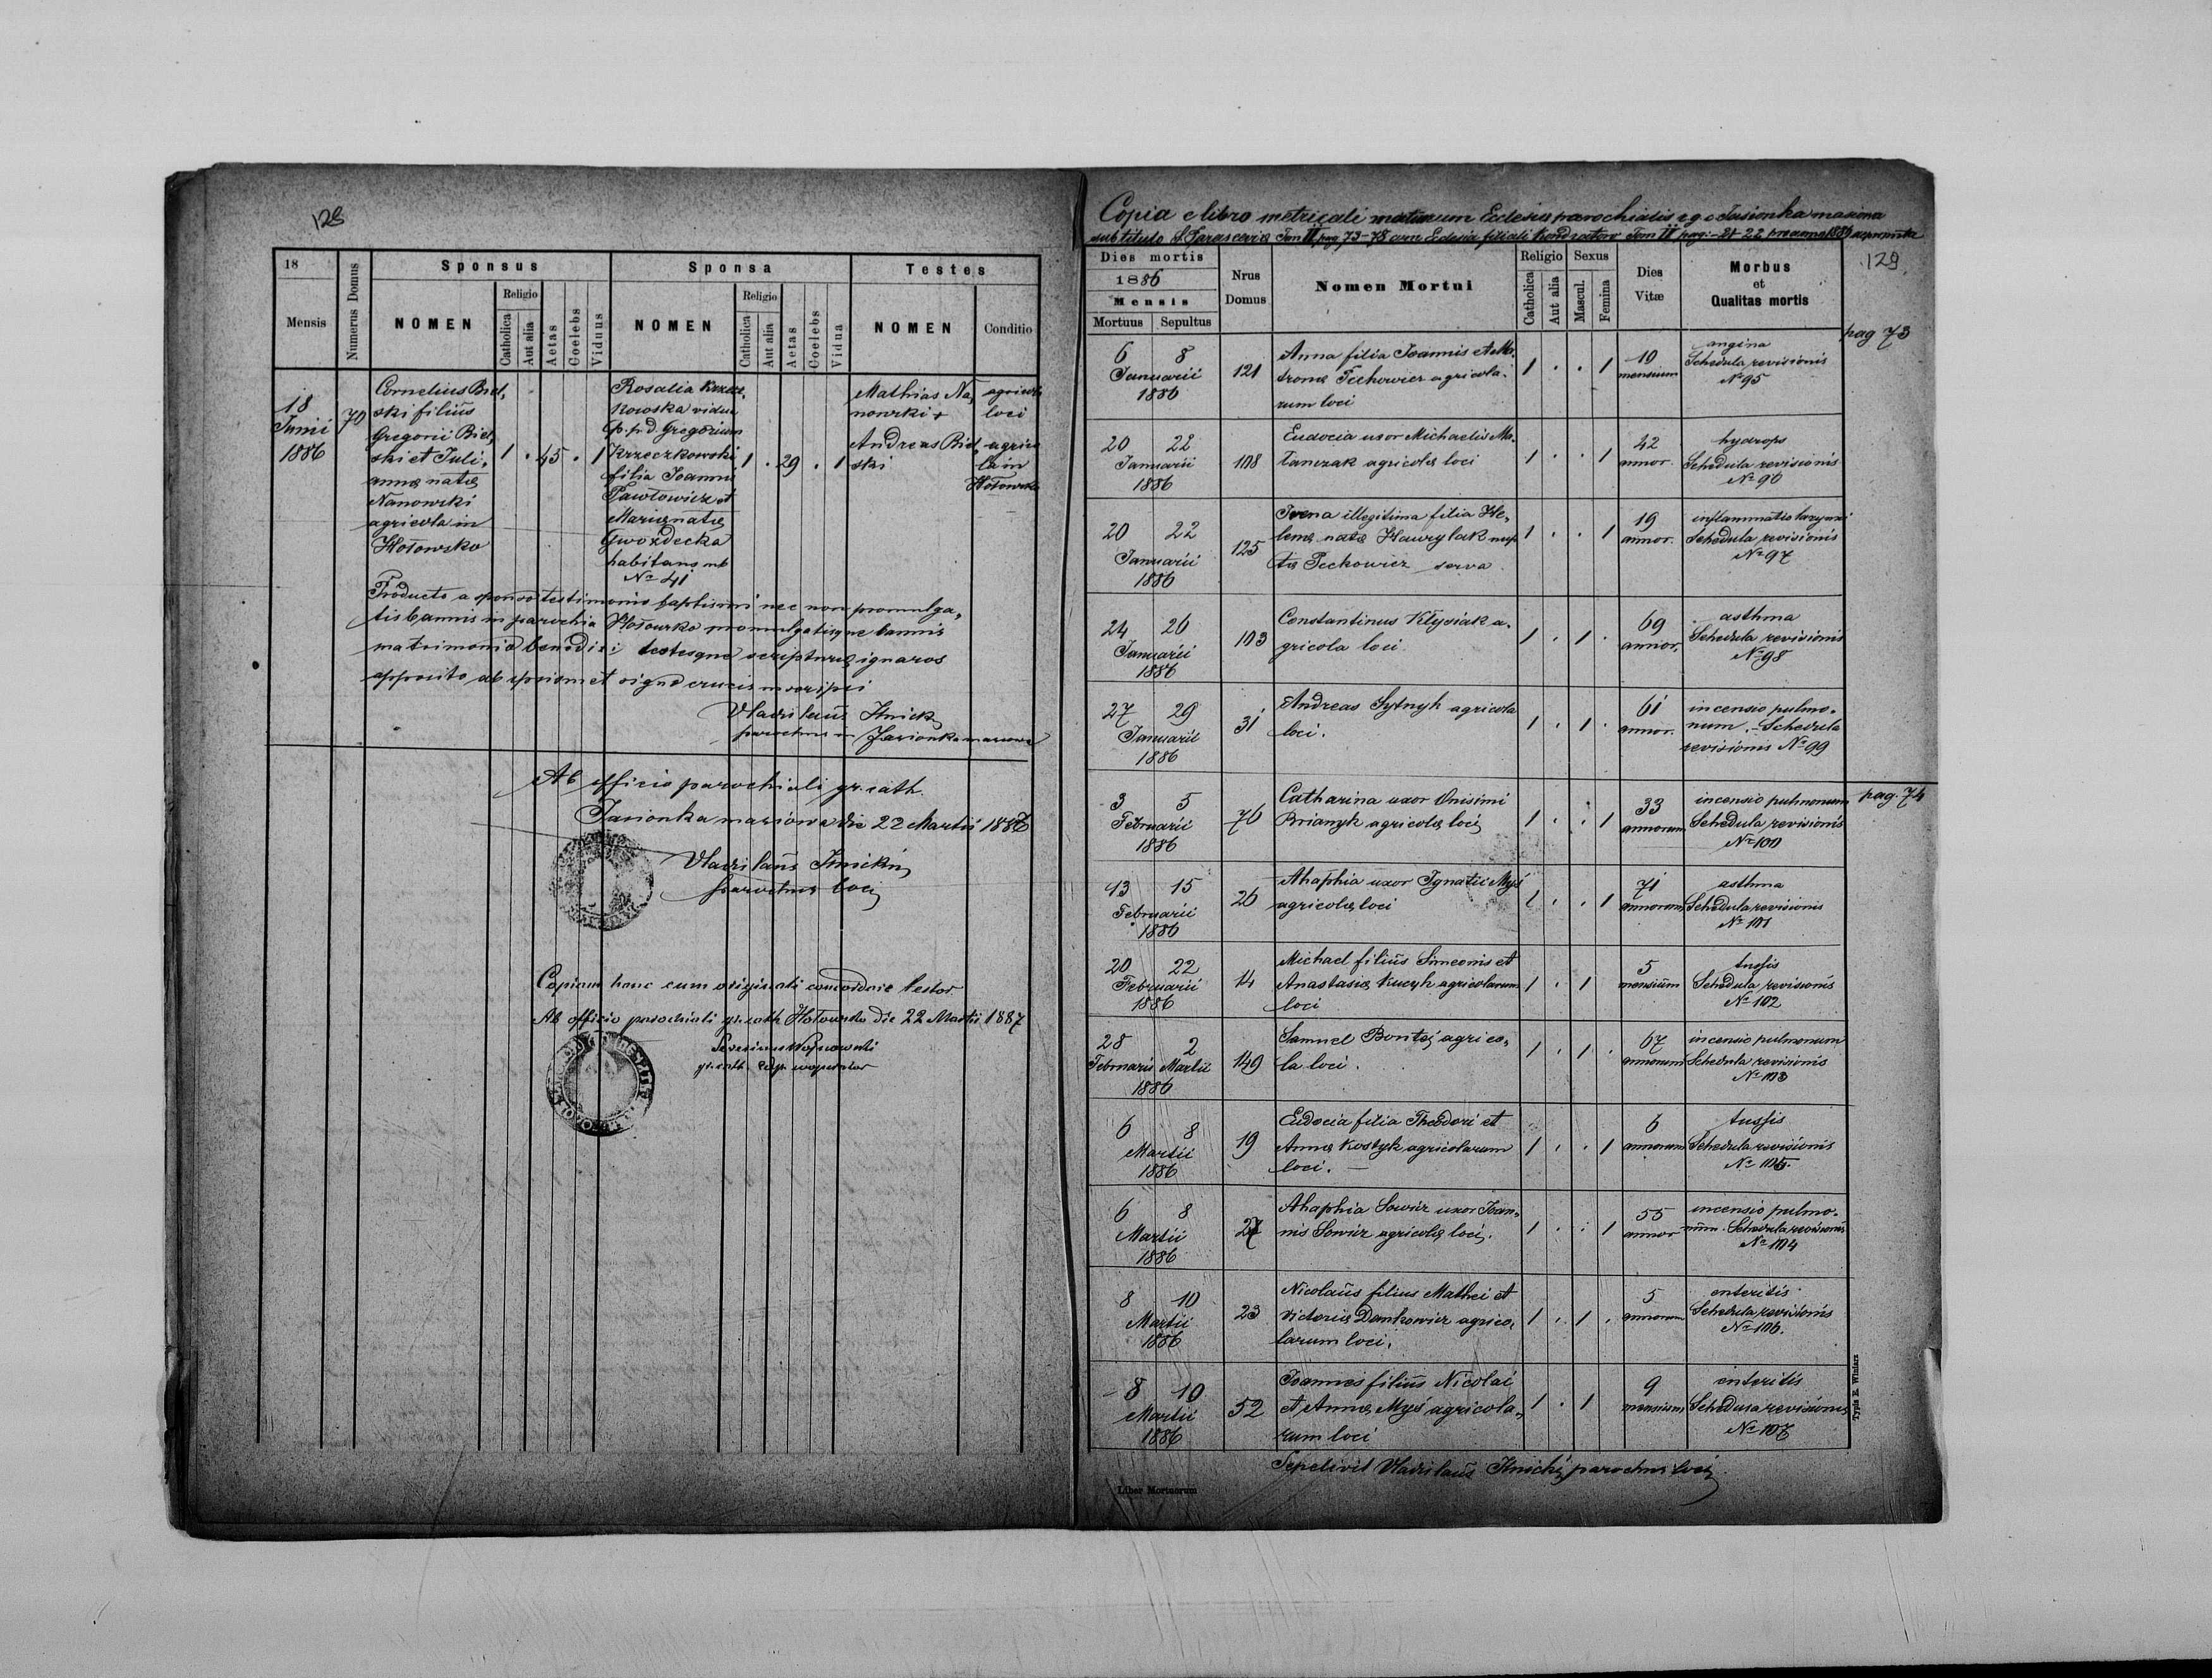 128
18
Mensis
Numerus Domus
Sponsus
NOMEN
Religio
Catholica
Aut alia
Aetas
Coelebs
Viduus
Sponsa
NOMEN
Religio
Catholica
Aut alia
Aetas
Coelebs
Vidua
Testes
NOMEN
Conditio
18
Junii
1886
70
Cornelius Biel,
ski filius
Gregorii Biel,
ski et Juli,
annæ natæ
Nanowski
agricola in
Hołowsko
1 . 45 . 1
Rosalia Krzecz,
kowska vidua
p. p. d. Gregorium
Krzeczkowski
filia Joannis
Pawłowicz et
Mariæ natæ
Gwozdecka
habitans sub
No 41
1 . 29 . 1
Mathias Na,
nowski +
Andreas Biel,
ski
agricola
loci
agrico
la in
Hołowsko
Producto a sponso testimonio baptismi nec non promulga,
tis bannis in parochia Hołowsko promulgatisque bannis
matrimonio benedixi testesque scripturæ ignaros
apposito ab ipsismet signo crucis inscripsi
Vladislaus Ilnicki
parochus in Jasionka masiowa
Ab officio parochiali gr. cath.
Jasionka masiowa die 22 Martii 1887
Vladislaus Ilnicki
parochus loci
Copiam hanc cum originali concordare testor
Ab officio parochiali gr. cath Hołowsko die 22 Martii 1887
gr. cath.
Copia e libro metricali Ecclesiæ parochialis r. g. c. Jasionka masiowa
sub titulo S. Parascevia Tom II pag 73-78 cum Eclesia filiali Kondratow Tom II pag: 21 22 pro anno 1886
129
Dies mortis
1886
Mensis
Mortuus
Sepultus
Nrus
Domus
Nomen Mortui
Religio
Catholica
Aut alia
Sexus
Mascul.
Femina
Dies
Vitæ
Morbus
et
Qualitas mortis
pag 73
6 8
Januarii
1886
121
Anna filia Joannis et Ma,
tronæ Pechowicz agricola,
rum loci
1 . . 1
10
mensium
angina
Schedula revisionis
No 95
20 22
Januarii
1886
108
Eudocia uxor Michaelis Ma,
łanczak agricolæ loci
1 . . 1
42
annor.
hydrops
Schedula revisionis
No 96
20 22
Januarii
1886
125
Irena illegitima filia He,
lenæ natæ Hawrylak nup
tæ Pechowicz serva
1 . . 1
19
annor.
inflammatio laryngi
Schedula revisionis
No 97
24 26
Januarii
1886
103
Constantinus Kłysiak a,
gricola loci
1 . 1 .
69
annor.
asthma
Schedula revisionis
No 98
27 29
Januarii
1886
31
Andreas Sytnyk agricola
loci.
1 . 1 .
61
annor.
incensio pulmo,
num. - Schedula
revisionis No 99
pag. 74
3 5
Februarii
1886
76
Catharina uxor Onisimi
Brianyk agricolæ loci
1 . . 1
33
annorum
incensio pulmonum
Schedula revisionis
No 100
13 15
Februarii
1886
26
Ahaphia uxor Ignatii Myś
agricolæ loci
1 . . 1
71
annorum
asthma
Schedula revisionis
No 101
20 22
Februarii
1886
14
Michael filius Simeonis et
Anastasiæ Kucyk agricolarum
loci
1 . 1
5
mensium
tussis
Schedula revisionis
No 102
28 2
Februarii Martii
1886
149
Samuel Bontej agrico,
la loci.
1 . 1 .
67
annorum
incensio pulmonum
Schedula revisionis
No 103
6 8
Martii
1886
19
Eudocia filia Theodori et
Annæ Kostyk agricolarum
loci. —
1 . . 1
6
annorum
tussis
Schedula revisionis
No 105.
6 8
Martii
1886
27
Ahaphia Sowiz uxor Joan,
nis Sowiz agricolæ loci.
1 . . 1
55
annor
incensio pulmo,
num. Schedula revisionis
No 104
8 10
Martii
1886
23
Nicolaus filius Mathei et
Victoriæ Dankowicz agrico,
larum loci.
1 . 1 .
5
annorum
enteritis
Schedula revisionis
No 106.
8 10
Martii
1886
52
Joannes filius Nicolai
et Annæ Myś agricola,
rum loci
1 . 1
9
mensium
enteritis
Schedula revisionis
No 107
Sepelivit Vladislaus Ilnicki parochus loci
Liber Mortuorum
Typis E. Winiarz